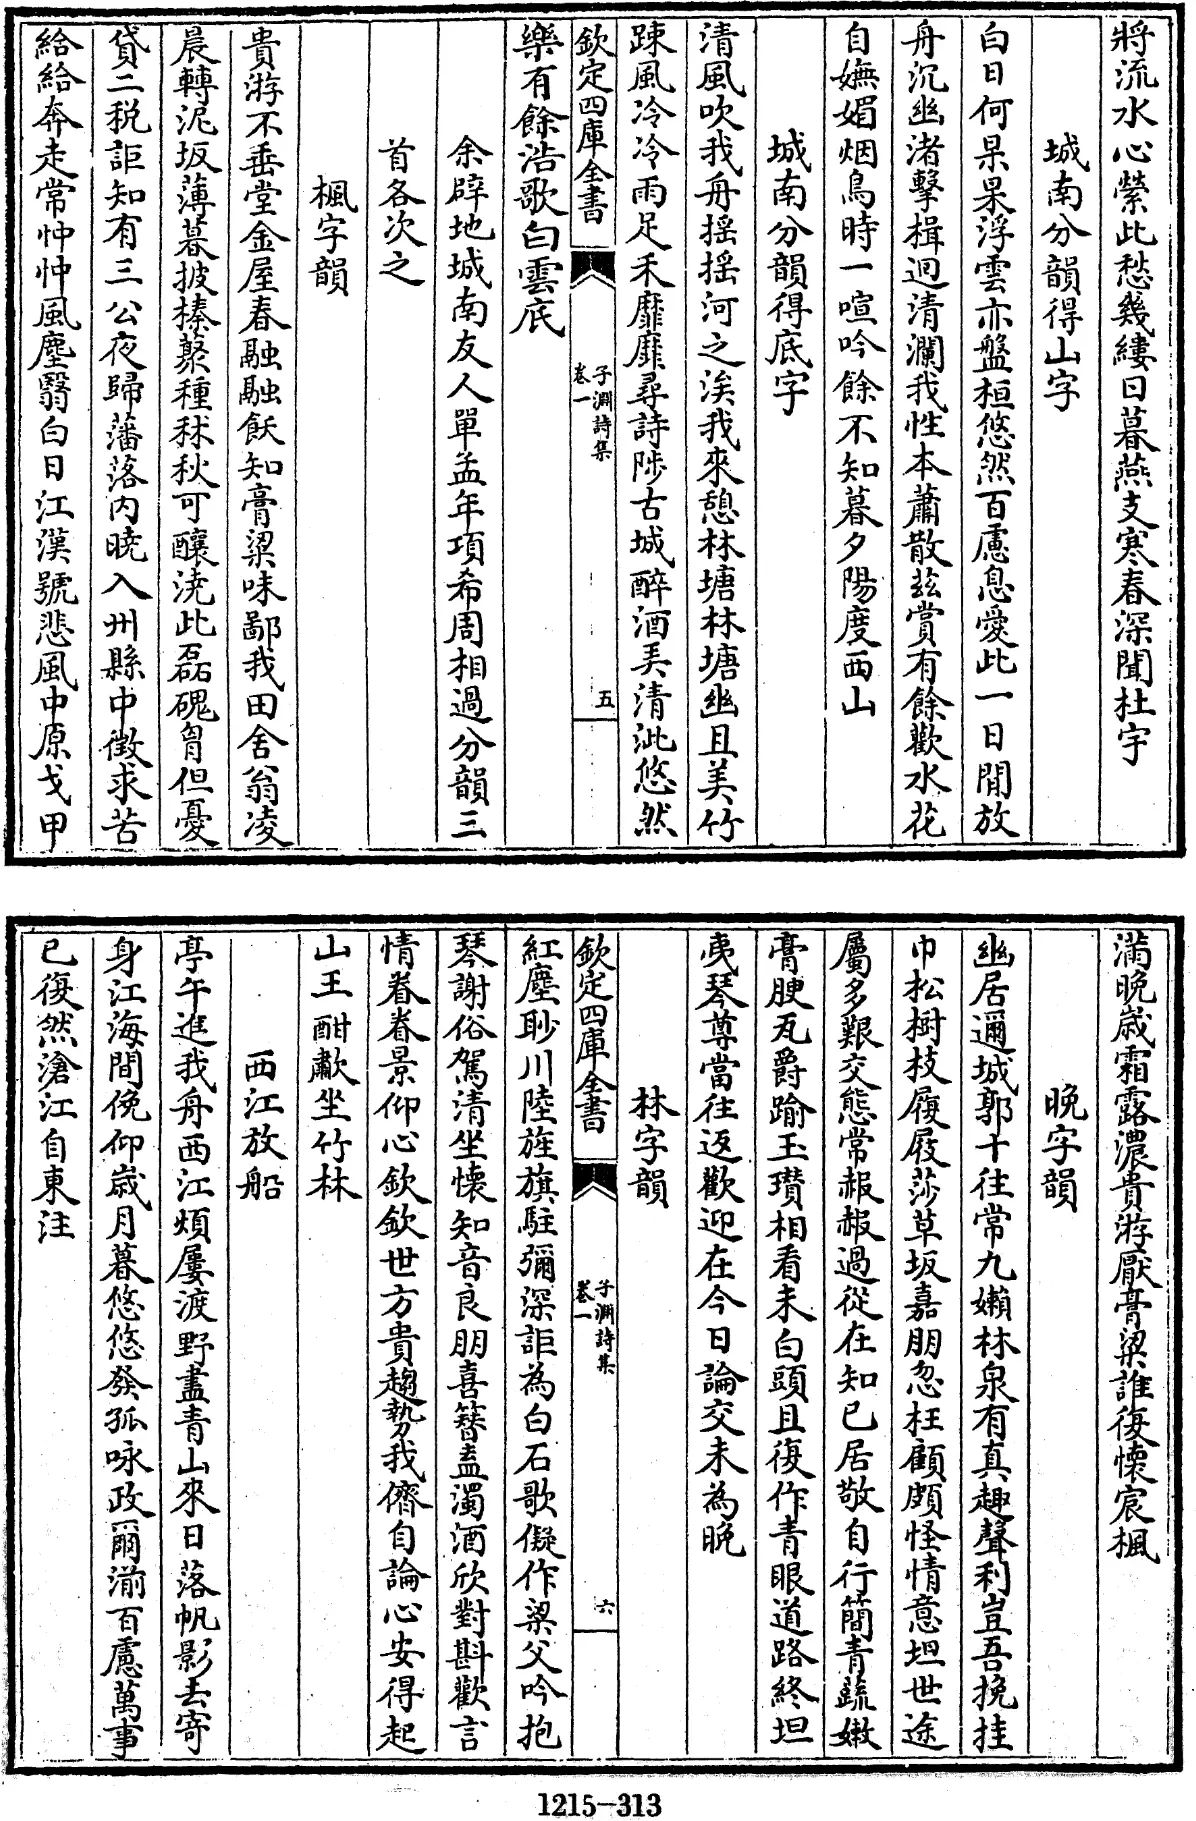 將流水心縈此愁幾縷日暮燕支寒春深聞杜宇
城南分韻得山字
白日何杲杲浮雲亦盤桓悠然百慮息愛此一日閒放
舟沉幽渚擊楫迥清瀾我性本蕭散兹賞有餘歡水花
自嫵媚烟鳥時一喧吟餘不知暮夕陽度西山
城南分韻得底字
清風吹我舟揺揺河之涘我來憩林塘林塘幽且美竹
踈風冷冷雨足禾靡靡尋詩陟古城醉酒弄清泚悠然
欽定四庫全書
子淵詩集
卷一
五
樂有餘浩歌白雲底
余辟地城南友人單孟年項希周相過分韻三
首各次之
楓字韻
貴游不垂堂金屋春融融飫知膏粱味鄙我田舍翁凌
晨轉泥坂薄暮披榛藂種秫秋可釀澆此磊磈胷但憂
貸二税詎知有三公夜歸藩落内曉入州縣中徵求苦
給給奔走常忡忡風塵翳白日江漢號悲風中原戈甲
滿晩歲霜露濃貴游厭膏粱誰復懷宸楓
晩字韻
幽居邇城郭十往常九嬾林泉有真趣聲利豈吾挽挂
巾松樹枝履屐莎草坂嘉朋忽枉顧頗怪情意坦世途
屬多艱交態常赧赧過從在知已居敬自行簡青蔬嫩
膏腴瓦爵踰玉瓉相看未白頭且復作青眼道路終坦
夷琴尊當往返歡迎在今日論交未為晩
林字韻
欽定四庫全書
子淵詩集
卷一
六
紅塵眇川陸旌旗駐彌深詎為白石歌儗作梁父吟抱
琴謝俗駕清坐懷知音良朋喜簪盍濁酒欣對斟歡言
情眷眷景仰心欽欽世方貴趨勢我儕自論心安得起
山王酣歗坐竹林
西江放船
亭午進我舟西江頫屢渡野盡青山來日落帆影去寄
身江海間俛仰歲月暮悠悠發孤咏政爾湔百慮萬事
已復然滄江自東注
1215-313